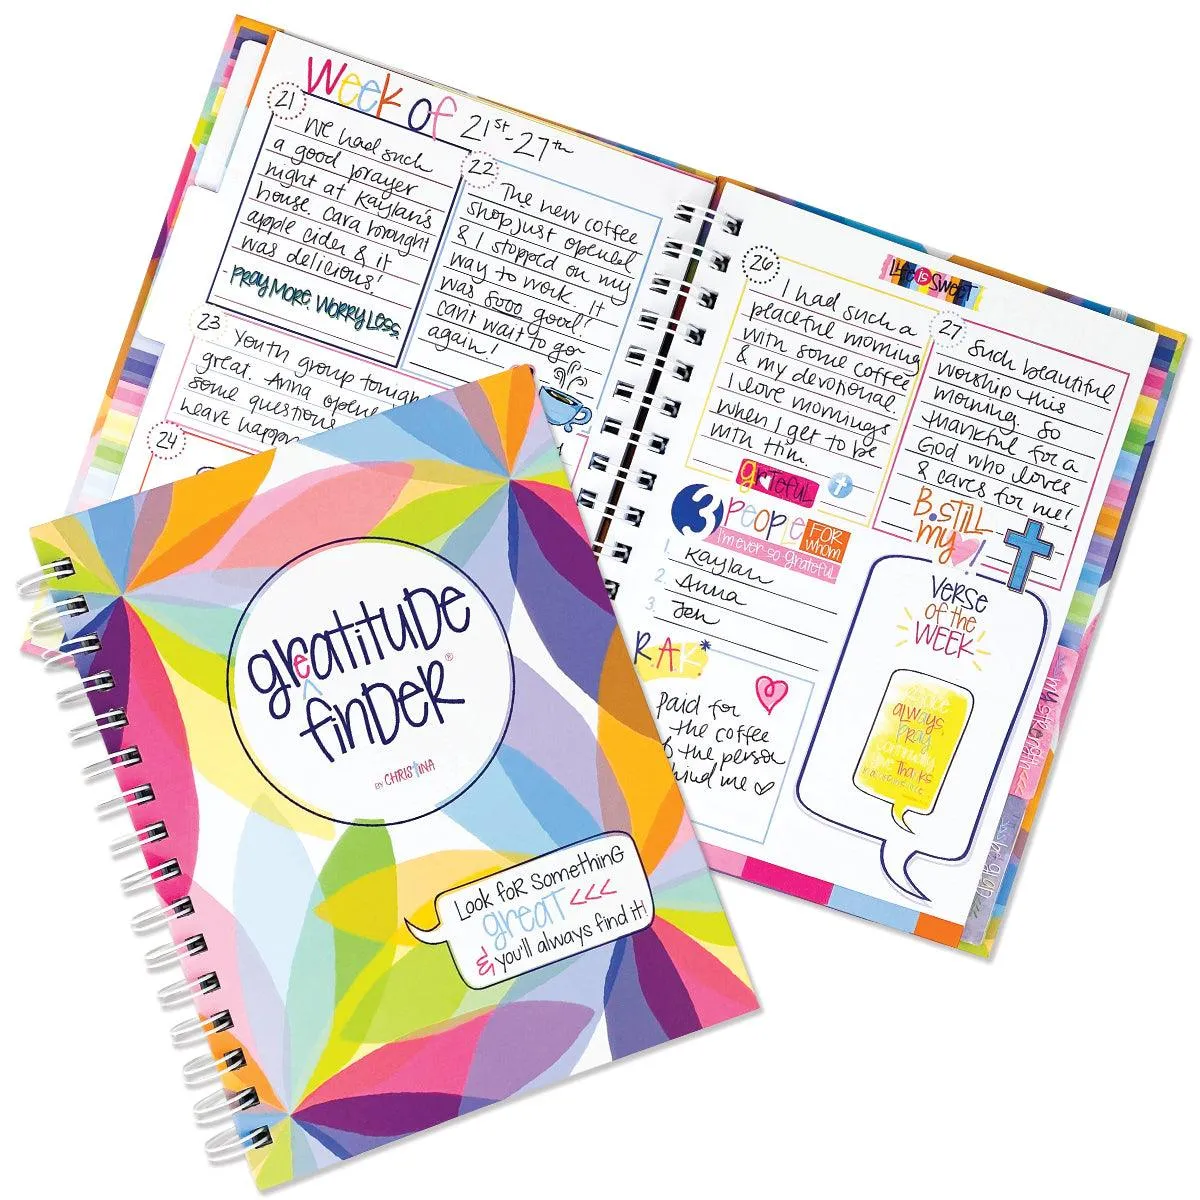 Week of 21st-27th
21
We had such
a good prayer
night at Kaylan's
house. Cara brought
apple cider & it
was delicious!
-PRAY MORE. WORRY LESS.
22
The new coffee
shop just opened
& I stopped on my
way to work. It
was sooo good!
can't wait to go
again!
23
Youth group tonight
great. Anna opened
some questions
heart happ
24
26
I had such a
peaceful morning
with some coffee
& my devotional.
I love mornings
when I get to be
with Him.
grateful
LIFE is SWEET
27
Such beautiful
worship this
morning. So
thankful for a
God who loves
& cares for me!
B.STILL
my !
3 PEOPLE FOR whom
I'm ever-so-grateful
1. Kaylan
2. Anna
3. Jen
RAK*
Paid for
the coffee
of the person
hind me
VERSE
OF the
WEEK
always,
pray
continually,
give thanks
gratitude
finder®
BY CHRISTINA
Look for something
great <<<
& you'll always find it!